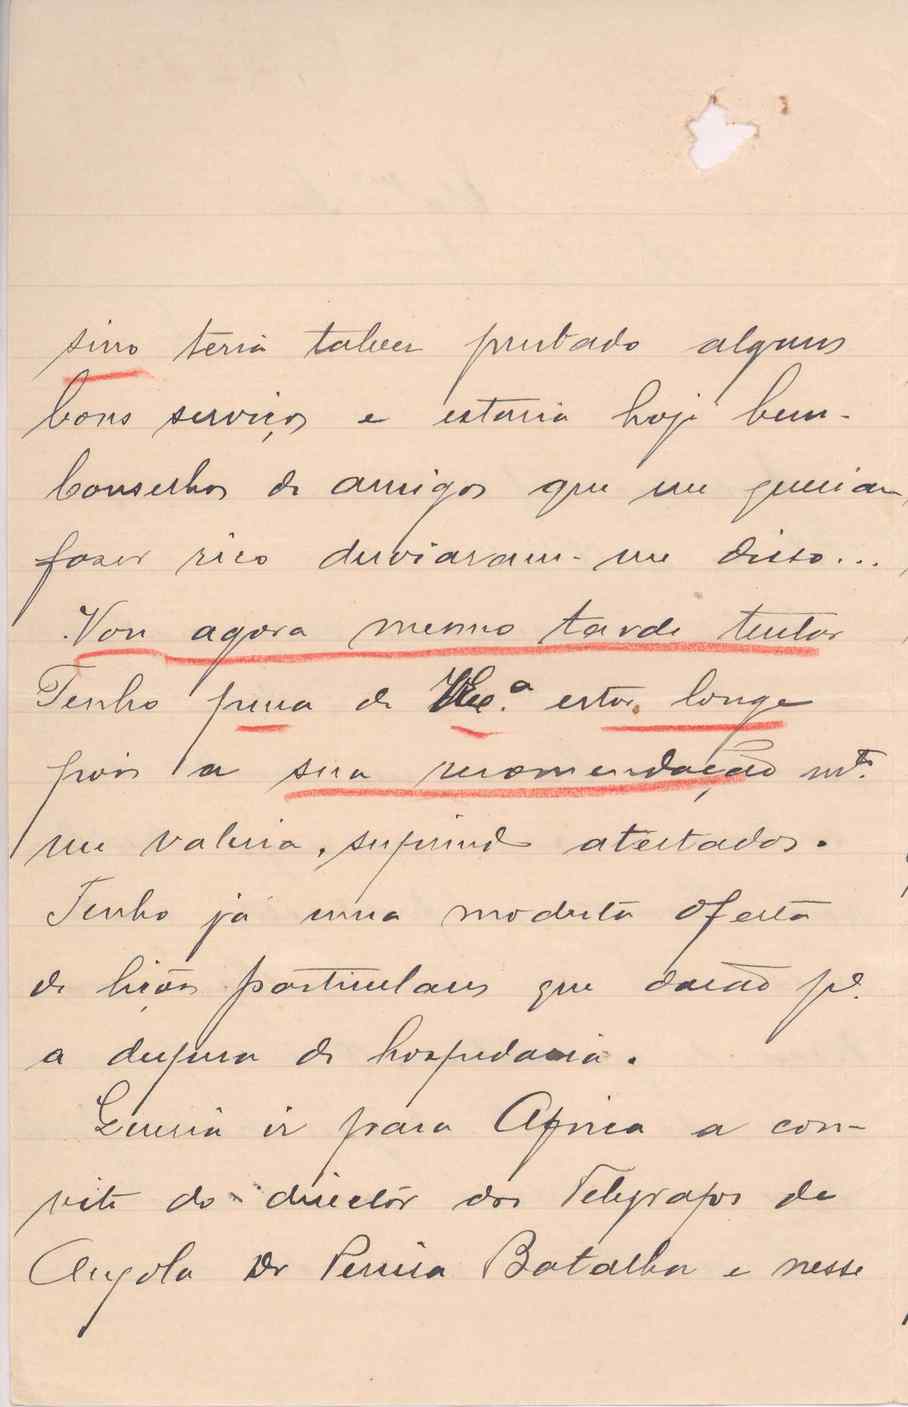 sino teria talvez prestado alguns
bons serviços e estaria hoje bem-
Conselhos de amigos que me queriam
fazer rico desviaram-me disso...
Vou agora mesmo tarde tentar
Tenho pena de V Ex.ª estar longe
pois a sua recomendação mto.
me valeria, suprindo atestados.
Tenho já uma modesta oferta
de lições particulares que darão pª.
a despesa de hospedaria.
Queria ir para Africa a con-
vite do director dos Telegrafos de
Angola Dr Pereira Batalha e nesse